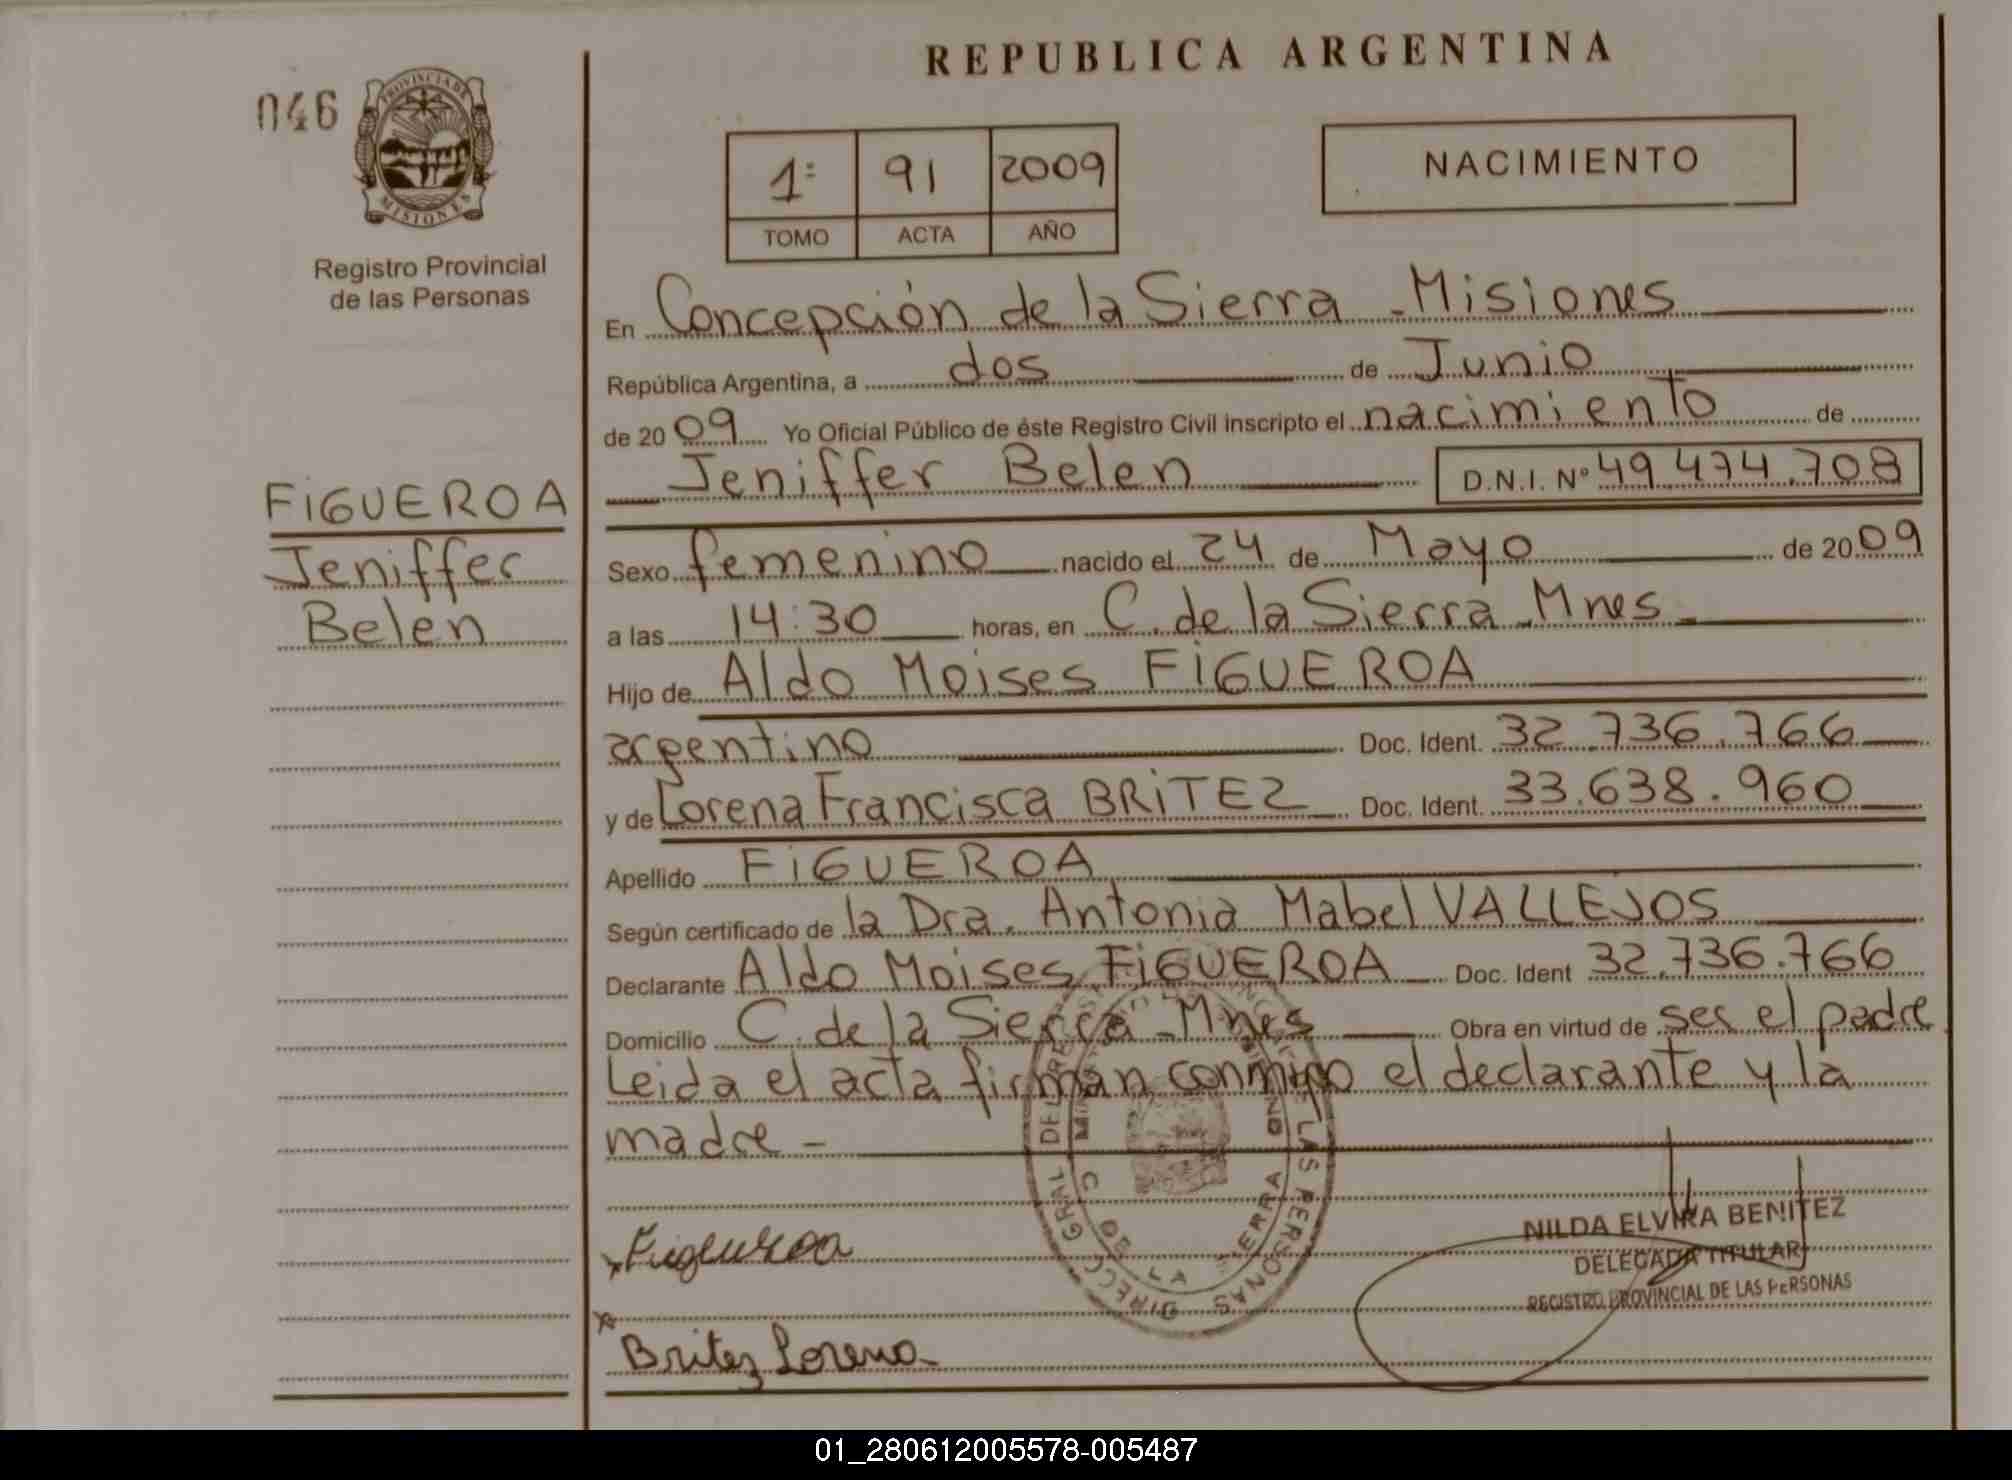 REPUBLICA ARGENTINA
046
PROVINCIA DE
MISIONES
Registro Provincial
de las Personas
1º 91 2009
TOMO ACTA AÑO
NACIMIENTO
En Concepción de la Sierra - Misiones
República Argentina, a dos de Junio
de 2009 Yo Oficial Público de éste Registro Civil inscripto el nacimiento de
Jeniffer Belen D.N.I. Nº 49.474.708
FIGUEROA
Jeniffer
Belen
Sexo femenino nacido el 24 de Mayo de 2009
a las 14:30 horas, en C. de la Sierra - Mnes -
Hijo de Aldo Moises FIGUEROA
argentino Doc. Ident. 32.736.766
y de Lorena Francisca BRITEZ Doc. Ident. 33.638.960
Apellido FIGUEROA
Según certificado de la Dra. Antonia Mabel VALLEJOS
Declarante Aldo Moises FIGUEROA Doc. Ident 32.736.766
Domicilio C. de la Sierra - Mnes Obra en virtud de ser el padre
Leida el acta firman conmigo el declarante y la
madre -
DIRECC GRAL DEL REGIST LAS PERSONAS
C DE LA SIERRA
NILDA ELVIRA BENITEZ
DELEGADA TITULAR
REGISTRO PROVINCIAL DE LAS PERSONAS
x Figueroa
x
Britez Lorena
01_280612005578-005487